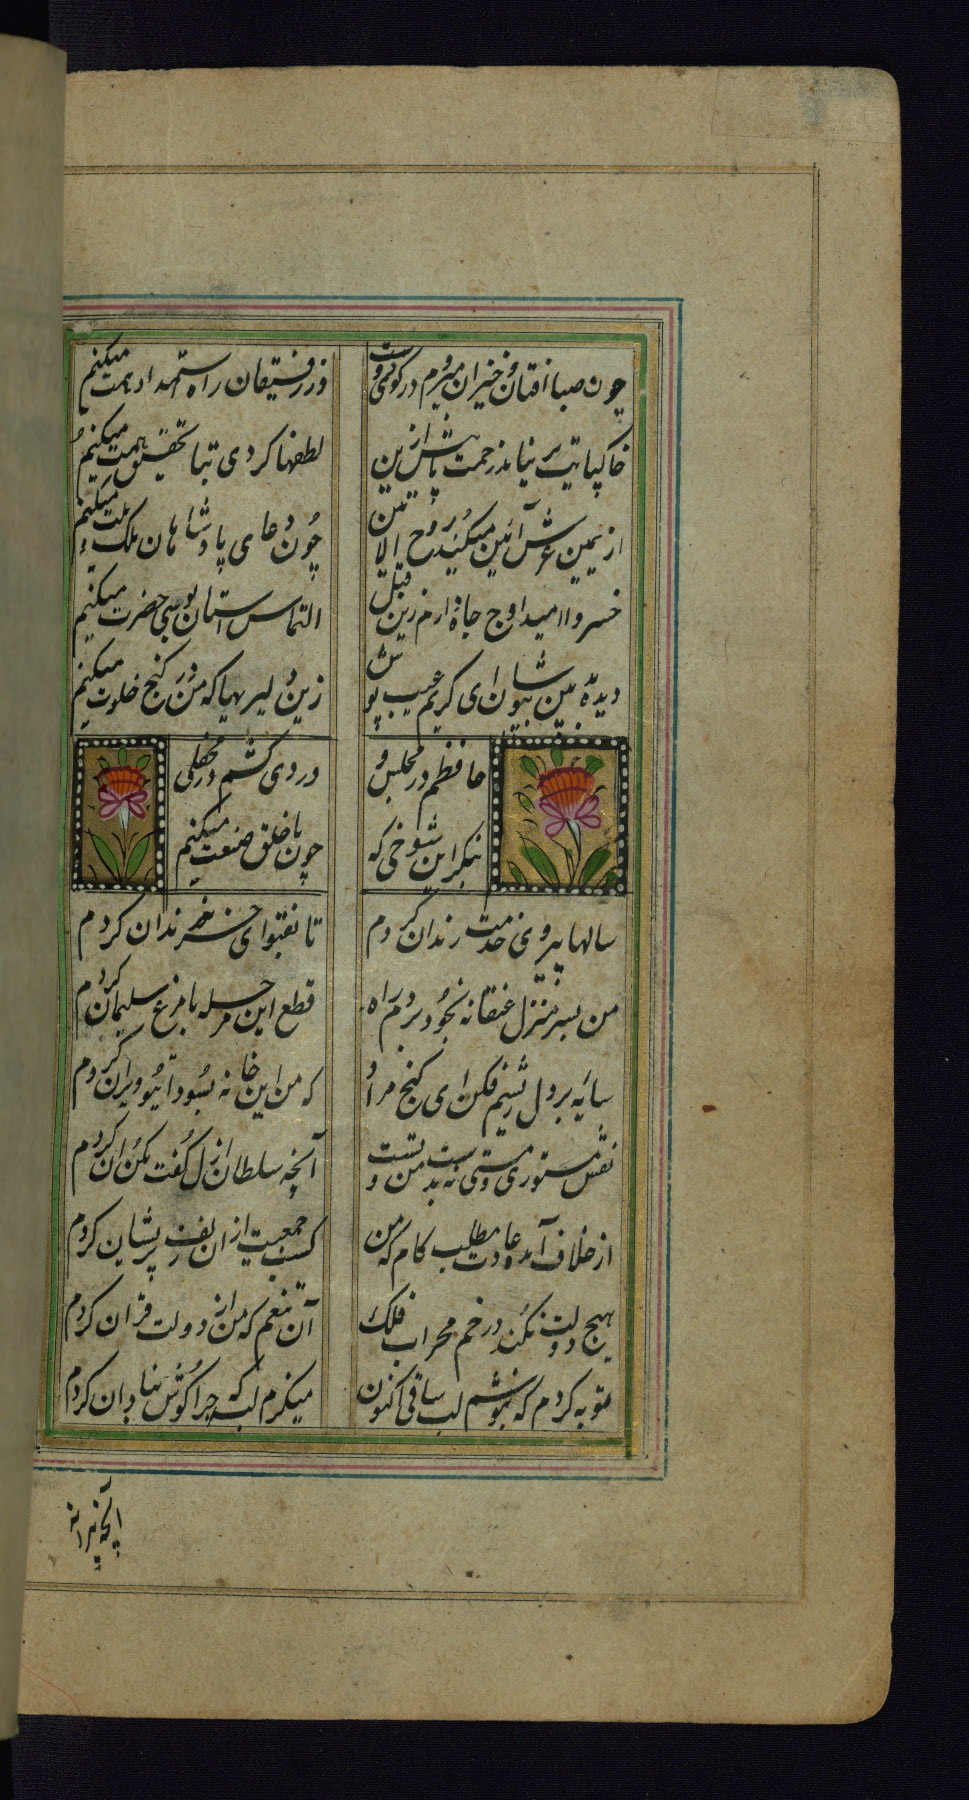 چون صبا افتان و خیزان میروم در کوی دوست و ز رفیقان راه استمداد همت میکنم
خاکپایت بر نیابد زحمت ما بیش ازین لطفها کردی بتا تحقیق همت میکنم
از یمین عرش آمین میکند روح الامین چون دعای پادشاهان ملک و ملت میکنم
خسروا امید اوج جاه دارم زین قبل التماس آستان بوسی حضرت میکنم
دیده بدبین بپوشان ای کریم عیب پوش زین دلیریها که من در کنج خلوت میکنم
حافظم در مجلسی و دردی کشم در محفلی
بنگر این شوخی که چون با خلق صنعت میکنم
سالها پیروی خدمت رندان کردم تا بفتوای خرد حرص بزندان کردم
من بسر منزل عنقا نه بخود بردم راه قطع این مرحله با مرغ سلیمان کردم
سایه بر دل ریشم فکن ای گنج مراد که من این خانه بسودای تو ویران کردم
نقش مستوری و مستی نه بدست من و تست آنچه سلطان ازل گفت بکن آن کردم
از خلاف آمد عادت مطلب کام که من کسب جمعیت از آن زلف پریشان کردم
هیچ دولت نکند در خم محراب فلک آن تنعم که من از دولت قرآن کردم
توبه کردم که نبوشم لب ساقی اکنون میگزم لب که چرا گوش بنادان کردم